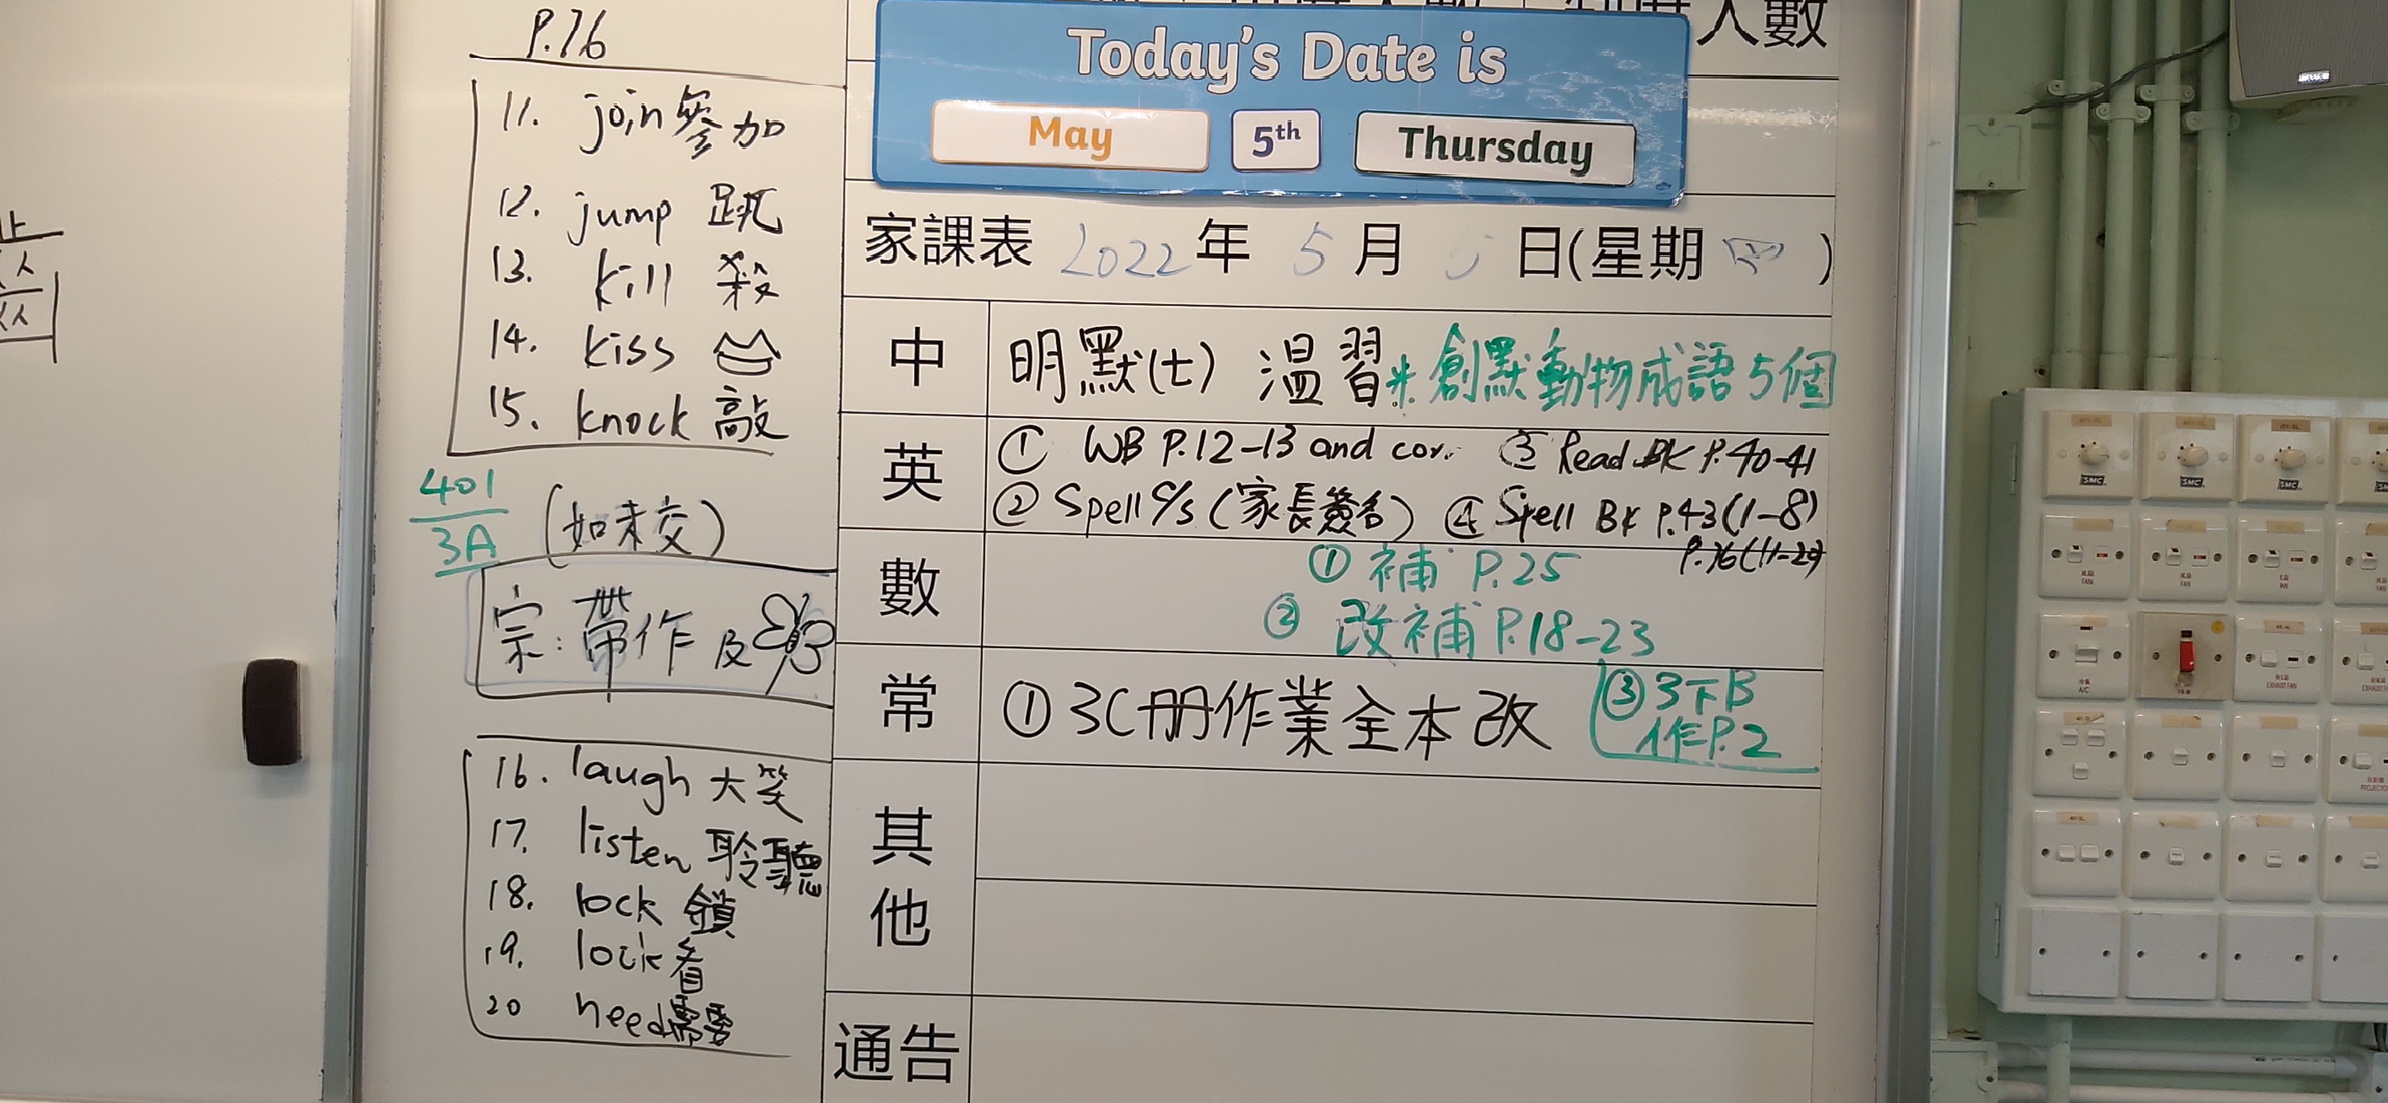 P.76
11. join 參加
12. jump 跳
13. kill 殺
14. kiss
15. knock 敲
401
3A
(如未交)
宗:帶作及
16. laugh 大笑
17. listen 聆聽
18. lock 鎖
19. look 看
20 need 需要
人數
Today's Date is
May 5th Thursday
家課表 2022年 5月 5日(星期四)
中 明默(七) 溫習 *創默動物成語5個
英 ① WB P.12-13 and cor. ③ Read BK P.40-41
② Spell C/S (家長簽名) ④ Spell BK P.43(1-8)
P.76(11-20)
數 ① 補 P.25
② 改補 P.18-23
③ 3下B
作P.2
常 ① 3C冊作業全本改
其他
通告